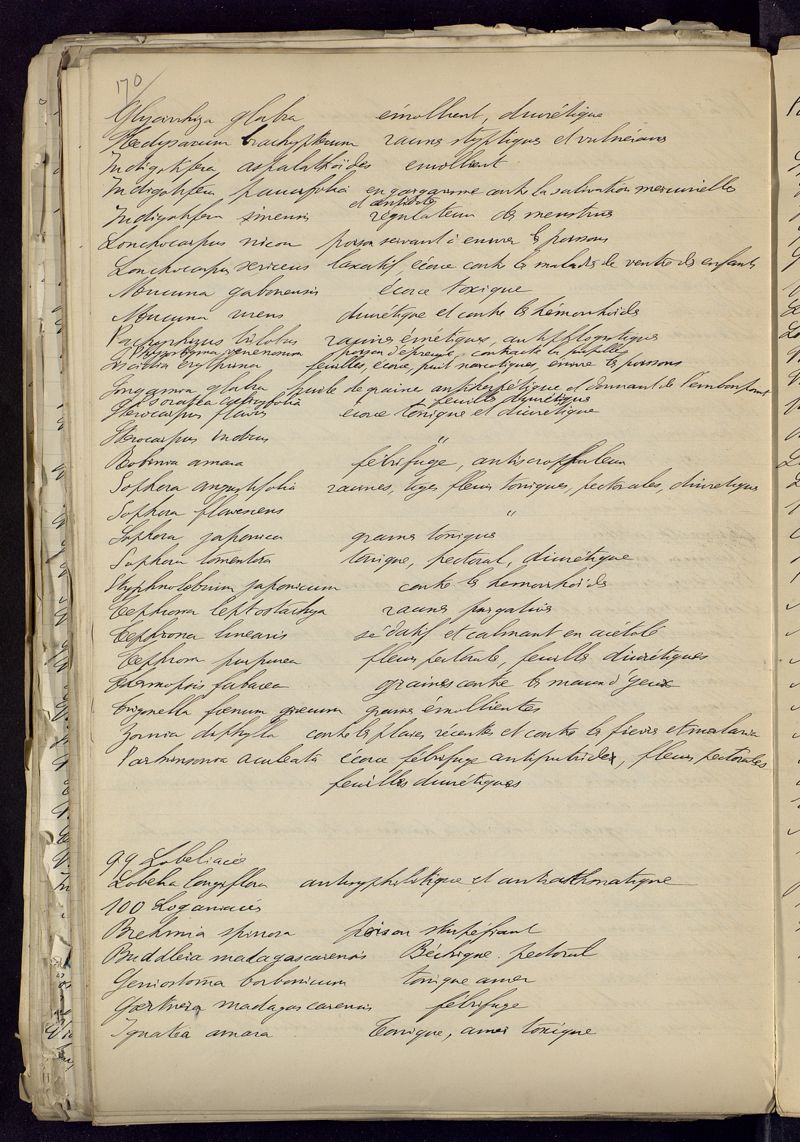 170
Glycirrhiza glabra émollient, diurétique
Hedysarum brachypterum racines styptiques et vulnéraires
Indigotifera aspalathoïdes émollient
Indigotifera paucifolia en gargarisme contre la salivation mercurielles
et antidote
Indigotifera sinensis régulateur des menstrues
Lonchocarpus nicou poison servant à enivrer les poissons
Lonchocarpus sericeus laxatif, écorce contre les maladies de ventre des enfants
Mucuna gabonensis écorce toxique
Mucuna urens diurétique et contre les hémorrhoïdes
Pachyrhizus trilobus racines émétiques, antiphlogistiques
Physostigma venenosum poison d'épreuve, contracte la pupille
Piscidia erythrina feuilles, écorce, fruit narcotiques, enivre les poissons
Pongamia glabra huile de graines antiherpétique et donnant de l'embonpoint
Psoralea corylifolia feuilles diurétiques
Pterocarpus flavus écorce tonique et diurétique
Pterocarpus indicus "
Robinia amara fébrifuge, antiscrophuleux
Sophora angustifolia racines, tiges fleurs toniques, pectorales, diurétiques
Sophora flavescens "
Sophora japonica graines toniques
Sophora tomentosa tonique, pectoral, diurétique
Styphnolobium japonicum contre les hémorrhoïdes
Tephrosia leptostachya racines purgatives
Tephrosia linearis sédatif et calmant en acétolé
Tephrosia purpurea fleurs pectorales, feuilles diurétiques
Thermopsis fabacea graines contre les maux d'yeux
Trigonella fœnum grœcum graines émollientes
Zornia diphylla contre les plaies récentes et contre les fièvres et malaria
Parkinsonia aculeata écorce fébrifuge antiputrides, fleurs pectorales
feuilles diurétiques
99 Lobeliacés
Lobelia longiflora antisyphilitique et antiasthmatique
100 Loganiacés
Brehmia spinosa poison stupéfiant
Buddleia madagascarensis Béchique. pectoral
Geniostoma borbonicum tonique amer
Gærtneia madagascarensis fébrifuge
Ignatia amara Tonique, amer toxique